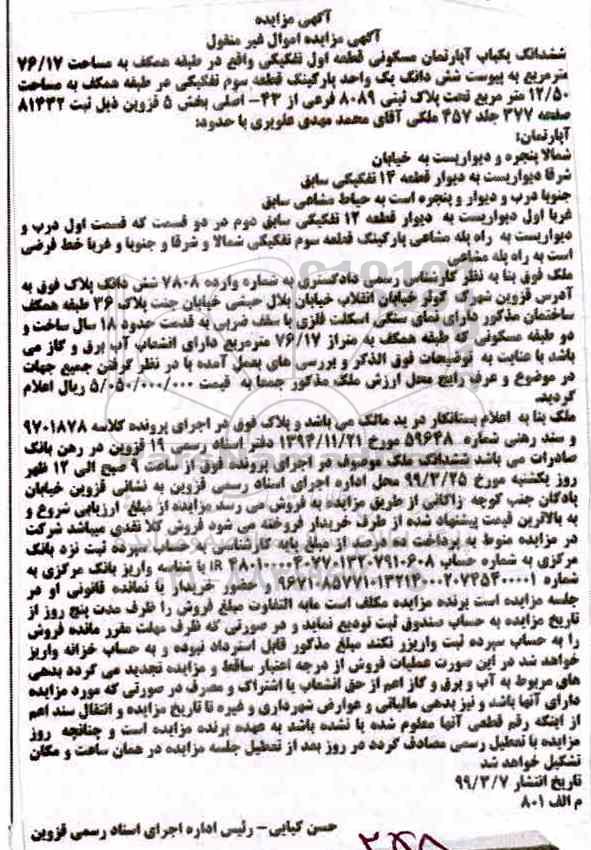 آگهی مزایده
آگهی مزایده اموال غیر منقول
ششدانگ یکباب آپارتمان مسکونی قطعه اول تفکیکی واقع در طبقه همکف به مساحت ۷۶/۱۷
مترمربع به پیوست شش دانگ یک واحد پارکینگ قطعه سوم تفکیکی در طبقه همکف به مساحت
۱۲/۵۰ متر مربع تحت پلاک ثبتی ۸۰۸۹ فرعی از ۴۳- اصلی بخش ۵ قزوین ذیل ثبت ۸۱۴۳۲
صفحه ۳۷۷ جلد ۴۵۷ ملکی آقای محمد مهدی علویری با حدود:
آپارتمان:
شمالا پنجره و دیواریست به خیابان
شرقا دیواریست به دیوار قطعه ۱۴ تفکیکی سابق
جنوبا درب و دیوار و پنجره است به حیاط مشاعی سابق
غربا اول دیواریست به دیوار قطعه ۱۲ تفکیکی سابق دوم در دو قسمت که قسمت اول درب و
دیواریست به راه پله مشاعی پارکینگ قطعه سوم تفکیکی شمالا و شرقا و جنوبا و غربا خط فرضی
است به راه پله مشاعی
ملک فوق بنا به نظر کارشناس رسمی دادگستری به شماره وارده ۷۸۰۸ شش دانگ پلاک فوق به
آدرس قزوین شهرک کوثر خیابان انقلاب خیابان بلال حبشی خیابان جنت پلاک ۳۶ طبقه همکف
ساختمان مذکور دارای نمای سنگی اسکلت فلزی با سقف ضربی به قدمت حدود ۱۸ سال ساخت و
دو طبقه مسکونی که طبقه همکف به متراژ ۷۶/۱۷ مترمربع دارای انشعاب آب برق و گاز می
باشد با عنایت به توضیحات فوق الذکر و بررسی های بعمل آمده با در نظر گرفتن جمیع جهات
در موضوع و عرف رایج محل ارزش ملک مذکور جمعا به قیمت ۵/۰۵۰/۰۰۰/۰۰۰ ریال اعلام
گردید.
ملک بنا به اعلام بستانکار در ید مالک می باشد و پلاک فوق در اجرای پرونده کلاسه ۹۷۰۱۸۷۸
و سند رهنی شماره ۵۹۶۴۸ مورخ ۱۳۹۴/۱۱/۲۱ دفتر اسناد رسمی ۱۹ قزوین در رهن بانک
صادرات می باشد ششدانگ ملک موصوف در اجرای پرونده فوق از ساعت ۹ صبح الی ۱۲ ظهر
روز یکشنبه مورخ ۹۹/۳/۲۵ محل اداره اجرای اسناد رسمی قزوین به نشانی قزوین خیابان
پادگان جنب کوچه زاکانی از طریق مزایده به فروش می رسد مزایده از مبلغ ارزیابی شروع و
به بالاترین قیمت پیشنهاد شده از طرف خریدار فروخته می شود فروش کلا نقدی میباشد شرکت
در مزایده منوط به پرداخت ده درصد از مبلغ پایه کارشناسی به حساب سپرده ثبت نزد بانک
مرکزی به شماره حساب IR ۴۸۰۱۰۰۰۰۴۰۷۷۰۱۳۲۰۷۹۱۰۶۰۸ با شناسه واریز بانک مرکزی به
شماره ۹۶۷۱۰۸۵۷۷۱۰۱۳۲۱۴۰۰۰۲۰۷۲۵۴۰۰۰۰۱ و حضور خریدار یا نماینده قانونی او در
جلسه مزایده است برنده مزایده مکلف است مابه التفاوت مبلغ فروش را ظرف مدت پنج روز از
تاریخ مزایده به حساب صندوق ثبت تودیع نماید و در صورتی که ظرف مهلت مقرر مانده فروش
را به حساب سپرده ثبت واریزر نکند مبلغ مذکور قابل استرداد نبوده و به حساب خزانه واریز
خواهد شد در این صورت عملیات فروش از درجه اعتبار ساقط و مزایده تجدید می گردد بدهی
های مربوط به آب و برق و گاز اعم از حق انشعاب یا اشتراک و مصرف در صورتی که مورد مزایده
دارای آنها باشد و نیز بدهی مالیاتی و عوارض شهرداری و غیره تا تاریخ مزایده و انتقال سند اعم
از اینکه رقم قطعی آنها معلوم شده یا نشده باشد به عهده برنده مزایده است و چنانچه روز
مزایده با تعطیل رسمی مصادف گردد در روز بعد از تعطیل جلسه مزایده در همان ساعت و مکان
تشکیل خواهد شد
تاریخ انتشار ۹۹/۳/۷
م الف ۸۰۱
حسن کیایی- رئیس اداره اجرای اسناد رسمی قزوین